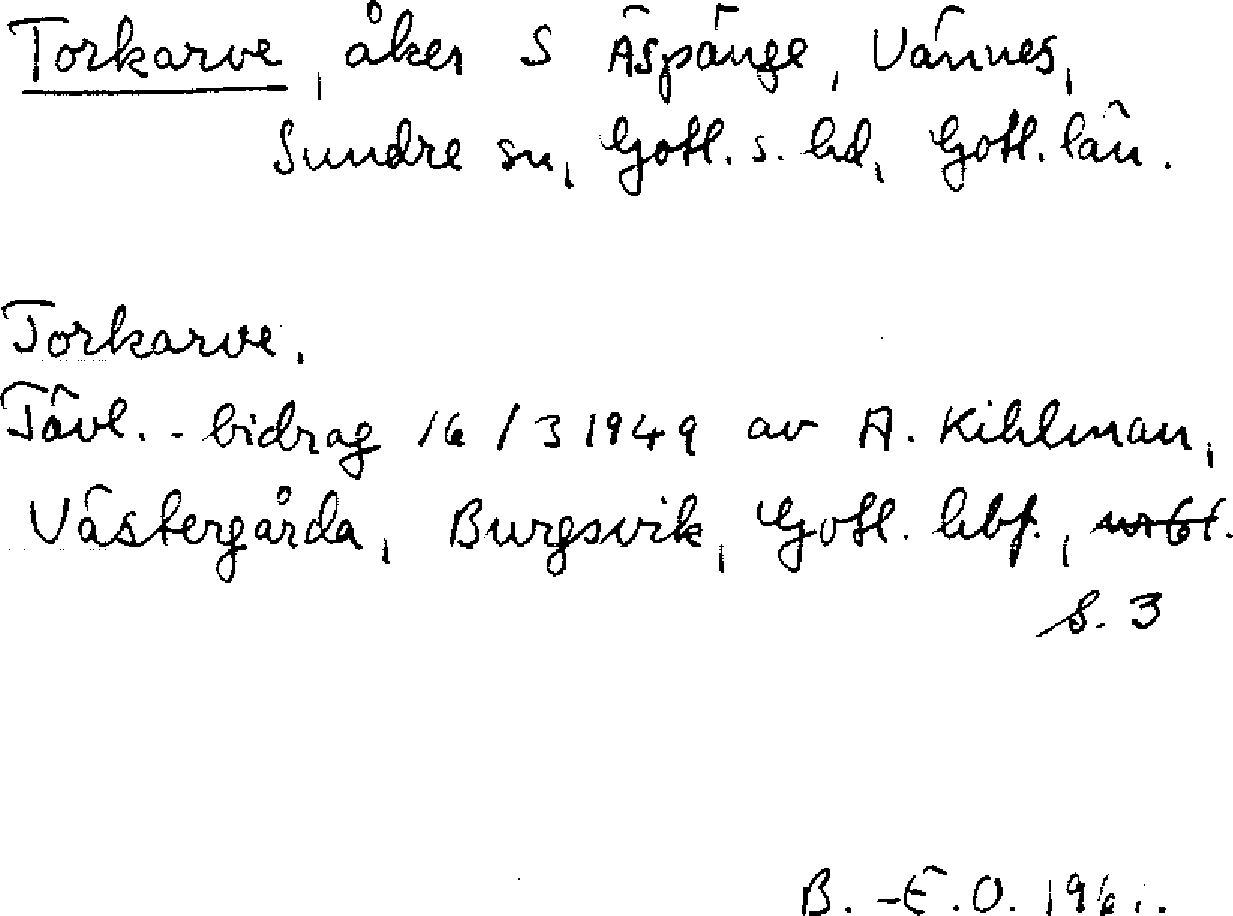 Torkarve, åker S Äspänge, Vännes,
Sundre sn, Gotl. s. hd, Gotl. län.
Torkarve.
Tävl.-bidrag 16/3 1949 av A. Kihlman,
Västergårda, Burgsvik, Gotl. hbf.,
s. 3
B.-E.O. 1961.